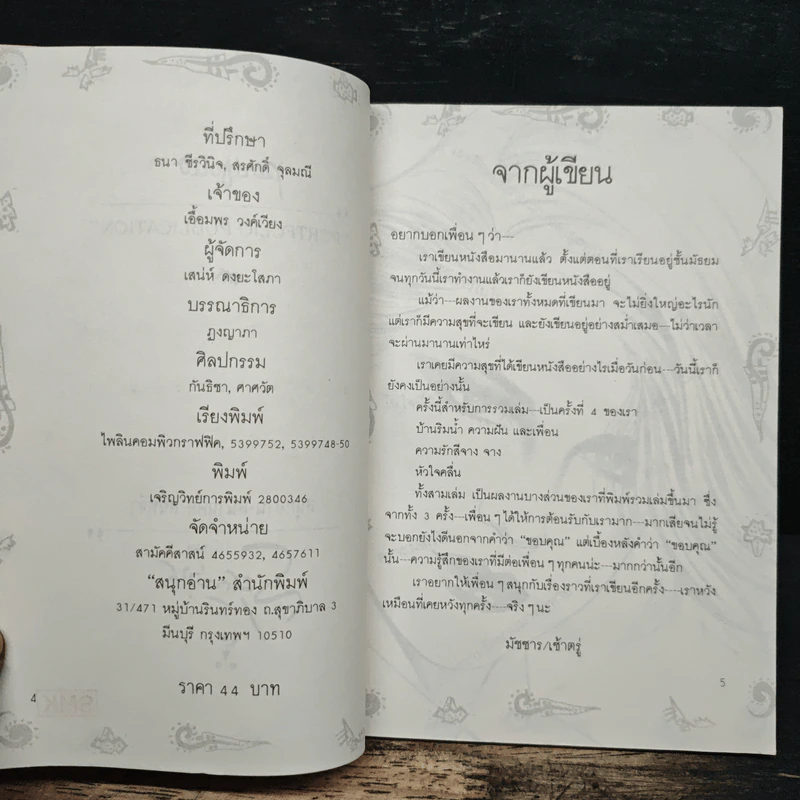 ที่ปรึกษา
ธนา ชีรวินิจ, สรศักดิ์ จุลมณี
เจ้าของ
เอื้อมพร วงค์เวียง
ผู้จัดการ
เสน่ห์ ดงยะโสภา
บรรณาธิการ
ภูงญาภา
ศิลปกรรม
กันธิชา, ศาศวัต
เรียงพิมพ์
ไพลินคอมพิวกราฟฟิค, 5399752, 5399748-50
พิมพ์
เจริญวิทย์การพิมพ์ 2800346
จัดจำหน่าย
สามัคคีสาสน์ 4655932, 4657611
"สนุกอ่าน" สำนักพิมพ์
31/471 หมู่บ้านรินทร์ทอง ถ.สุขาภิบาล 3
มีนบุรี กรุงเทพฯ 10510
ราคา 44 บาท
4
จากผู้เขียน
อยากบอกเพื่อน ๆ ว่า---
เราเขียนหนังสือมานานแล้ว ตั้งแต่ตอนที่เราเรียนอยู่ชั้นมัธยม
จนทุกวันนี้เราทำงานแล้วเราก็ยังเขียนหนังสืออยู่
แม้ว่า---ผลงานของเราทั้งหมดที่เขียนมา จะไม่ยิ่งใหญ่อะไรนัก
แต่เราก็มีความสุขที่จะเขียน และยังเขียนอยู่อย่างสม่ำเสมอ---ไม่ว่าเวลา
จะผ่านมานานเท่าไหร่
เราเคยมีความสุขที่ได้เขียนหนังสืออย่างไรเมื่อวันก่อน---วันนี้เราก็
ยังคงเป็นอย่างนั้น
ครั้งนี้สำหรับการรวมเล่ม---เป็นครั้งที่ 4 ของเรา
บ้านริมน้ำ ความฝัน และเพื่อน
ความรักสีจาง จาง
หัวใจคลื่น
ทั้งสามเล่ม เป็นผลงานบางส่วนของเราที่พิมพ์รวมเล่มขึ้นมา ซึ่ง
จากทั้ง 3 ครั้ง---เพื่อน ๆ ได้ให้การต้อนรับกับเรามาก---มากเสียจนไม่รู้
จะบอกยังไงดีนอกจากคำว่า "ขอบคุณ" แต่เบื้องหลังคำว่า "ขอบคุณ"
นั้น---ความรู้สึกของเราที่มีต่อเพื่อน ๆ ทุกคนน่ะ---มากกว่านั้นอีก
เราอยากให้เพื่อน ๆ สนุกกับเรื่องราวที่เราเขียนอีกครั้ง---เราหวัง
เหมือนที่เคยหวังทุกครั้ง---จริง ๆ นะ
มัชชาร/เช้าตรู่
5